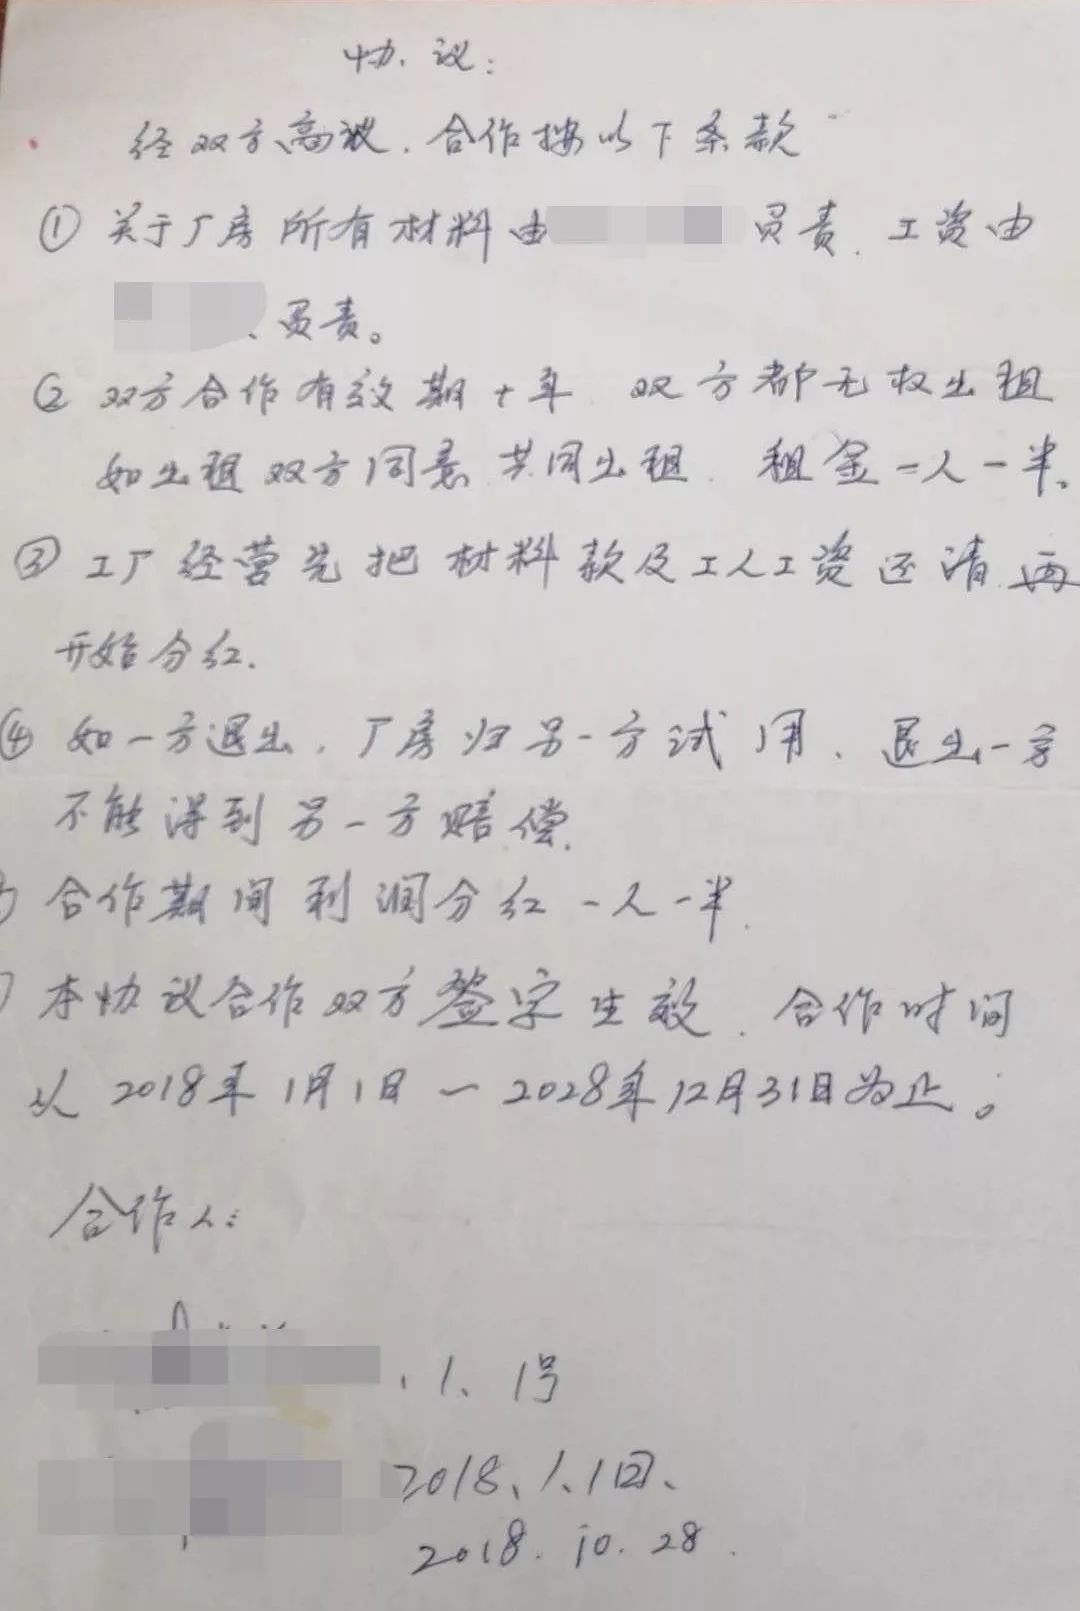 协议:
经双方商议.合作按以下条款
① 关于厂房所有材料由 负责.工资由
、负责。
② 双方合作有效期十年 双方都无权出租
如出租双方同意共同出租.租金一人一半、
③ 工厂经营先把材料款及工人工资还清再
开始分红.
④ 如一方退出.厂房归另一方试用、退出一方
不能得到另一方赔偿.
合作期间利润分红一人一半.
本协议合作双方签字生效.合作时间
从2018年1月1日一2028年12月31日为止。
合作人:
.1、1号
2018、1、1日、
2018.10.28.